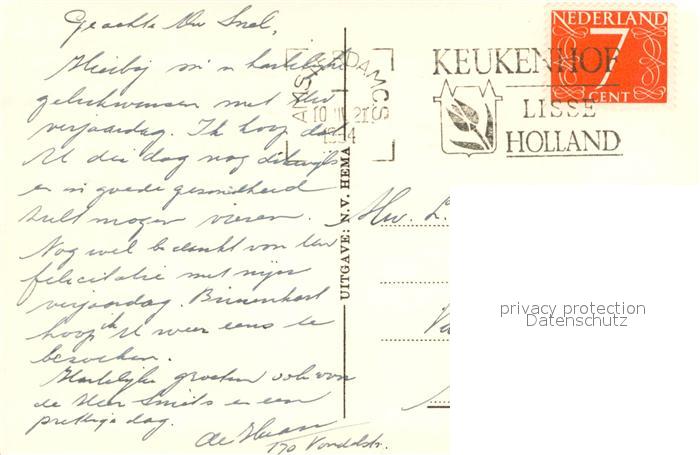 Geachte Mw Snel,
Hierbij mijn hartelijke
gelukwensen met Uw
verjaardag. Ik hoop dat
U die dag nog dikwijls
en in goede gezondheid
zult mogen vieren.
Nog wel bedankt voor Uw
felicitatie met mijn
verjaardag. Binnenkort
hoop ik U weer eens te
bezoeken.
Hartelijke groeten ook van
de Heer Smits en een
prettige dag.
de Haan
170 Vondelstr.
UITGAVE: N.V. HEMA
AMSTERDAM CS
1954
KEUKENHOF
LISSE
HOLLAND
NEDERLAND
7
CENT
Mw. L.
privacy protection
Datenschutz